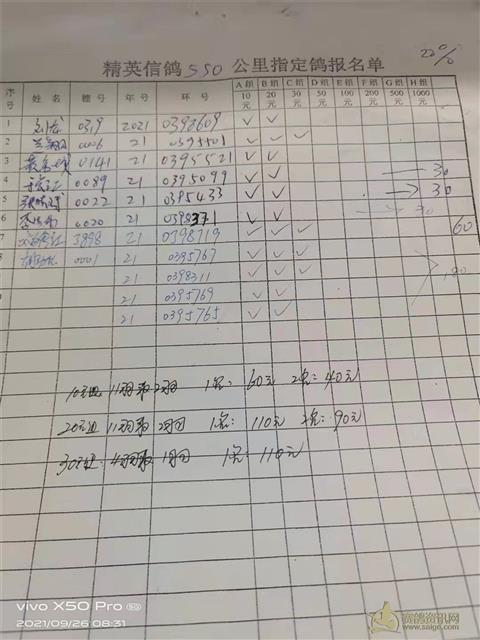 精英信鸽550公里指定鸽报名单 20%
序号 姓名 棚号 年号 环号 A组10元 B组20元 C组30元 D组50元 E组100元 F组200元 G组500元 H组1000元
1 刘龙 0319 2021 0398609 ✓ ✓
2 0006 21 ✓ ✓ ✓
3 0141 21 0395521 ✓ ✓
4 0089 21 0395099 ✓ ✓ 30
5 0022 21 0395433 ✓ ✓ 30
6 0020 21 0398371 ✓ ✓ 30
7 3898 21 0398719 ✓ ✓ ✓ 60
8 0001 21 0395767 ✓ ✓ ✓
21 0398311 ✓ ✓ ✓
21 0395769 ✓ ✓
21 0395765 ✓ ✓
10元组 11羽取2羽 1名：60元 2名：40元
20元组 11羽取2羽 1名：110元 2名：90元
30元组：4羽取1羽 1名：110元
vivo X50 Pro 5G
2021/09/26 08:31
赛鸽资讯网
www.saige.com